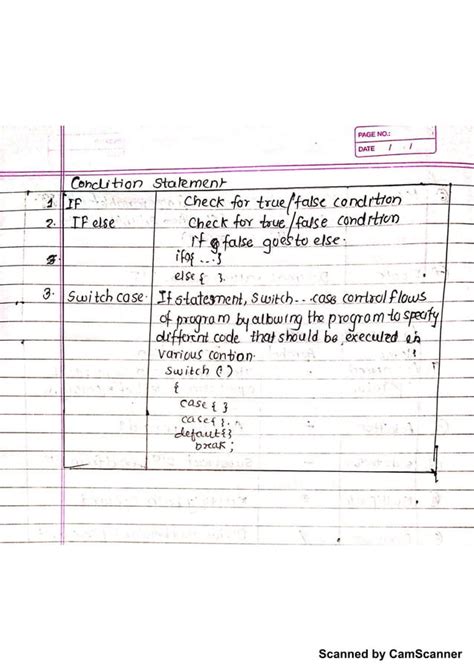 PAGE NO.:
DATE / /
Condition Statement
1. IF Check for true/false condition
2. IF else Check for true/false condition
if false goes to else.
if(){...}
else{ }.
3. Switch case. If statesment, switch... case control flows
of program by allowing the program to specify
different code that should be executed in
various contion.
switch ()
{
case { }
case { }.
defaut{}
break;
Scanned by CamScanner